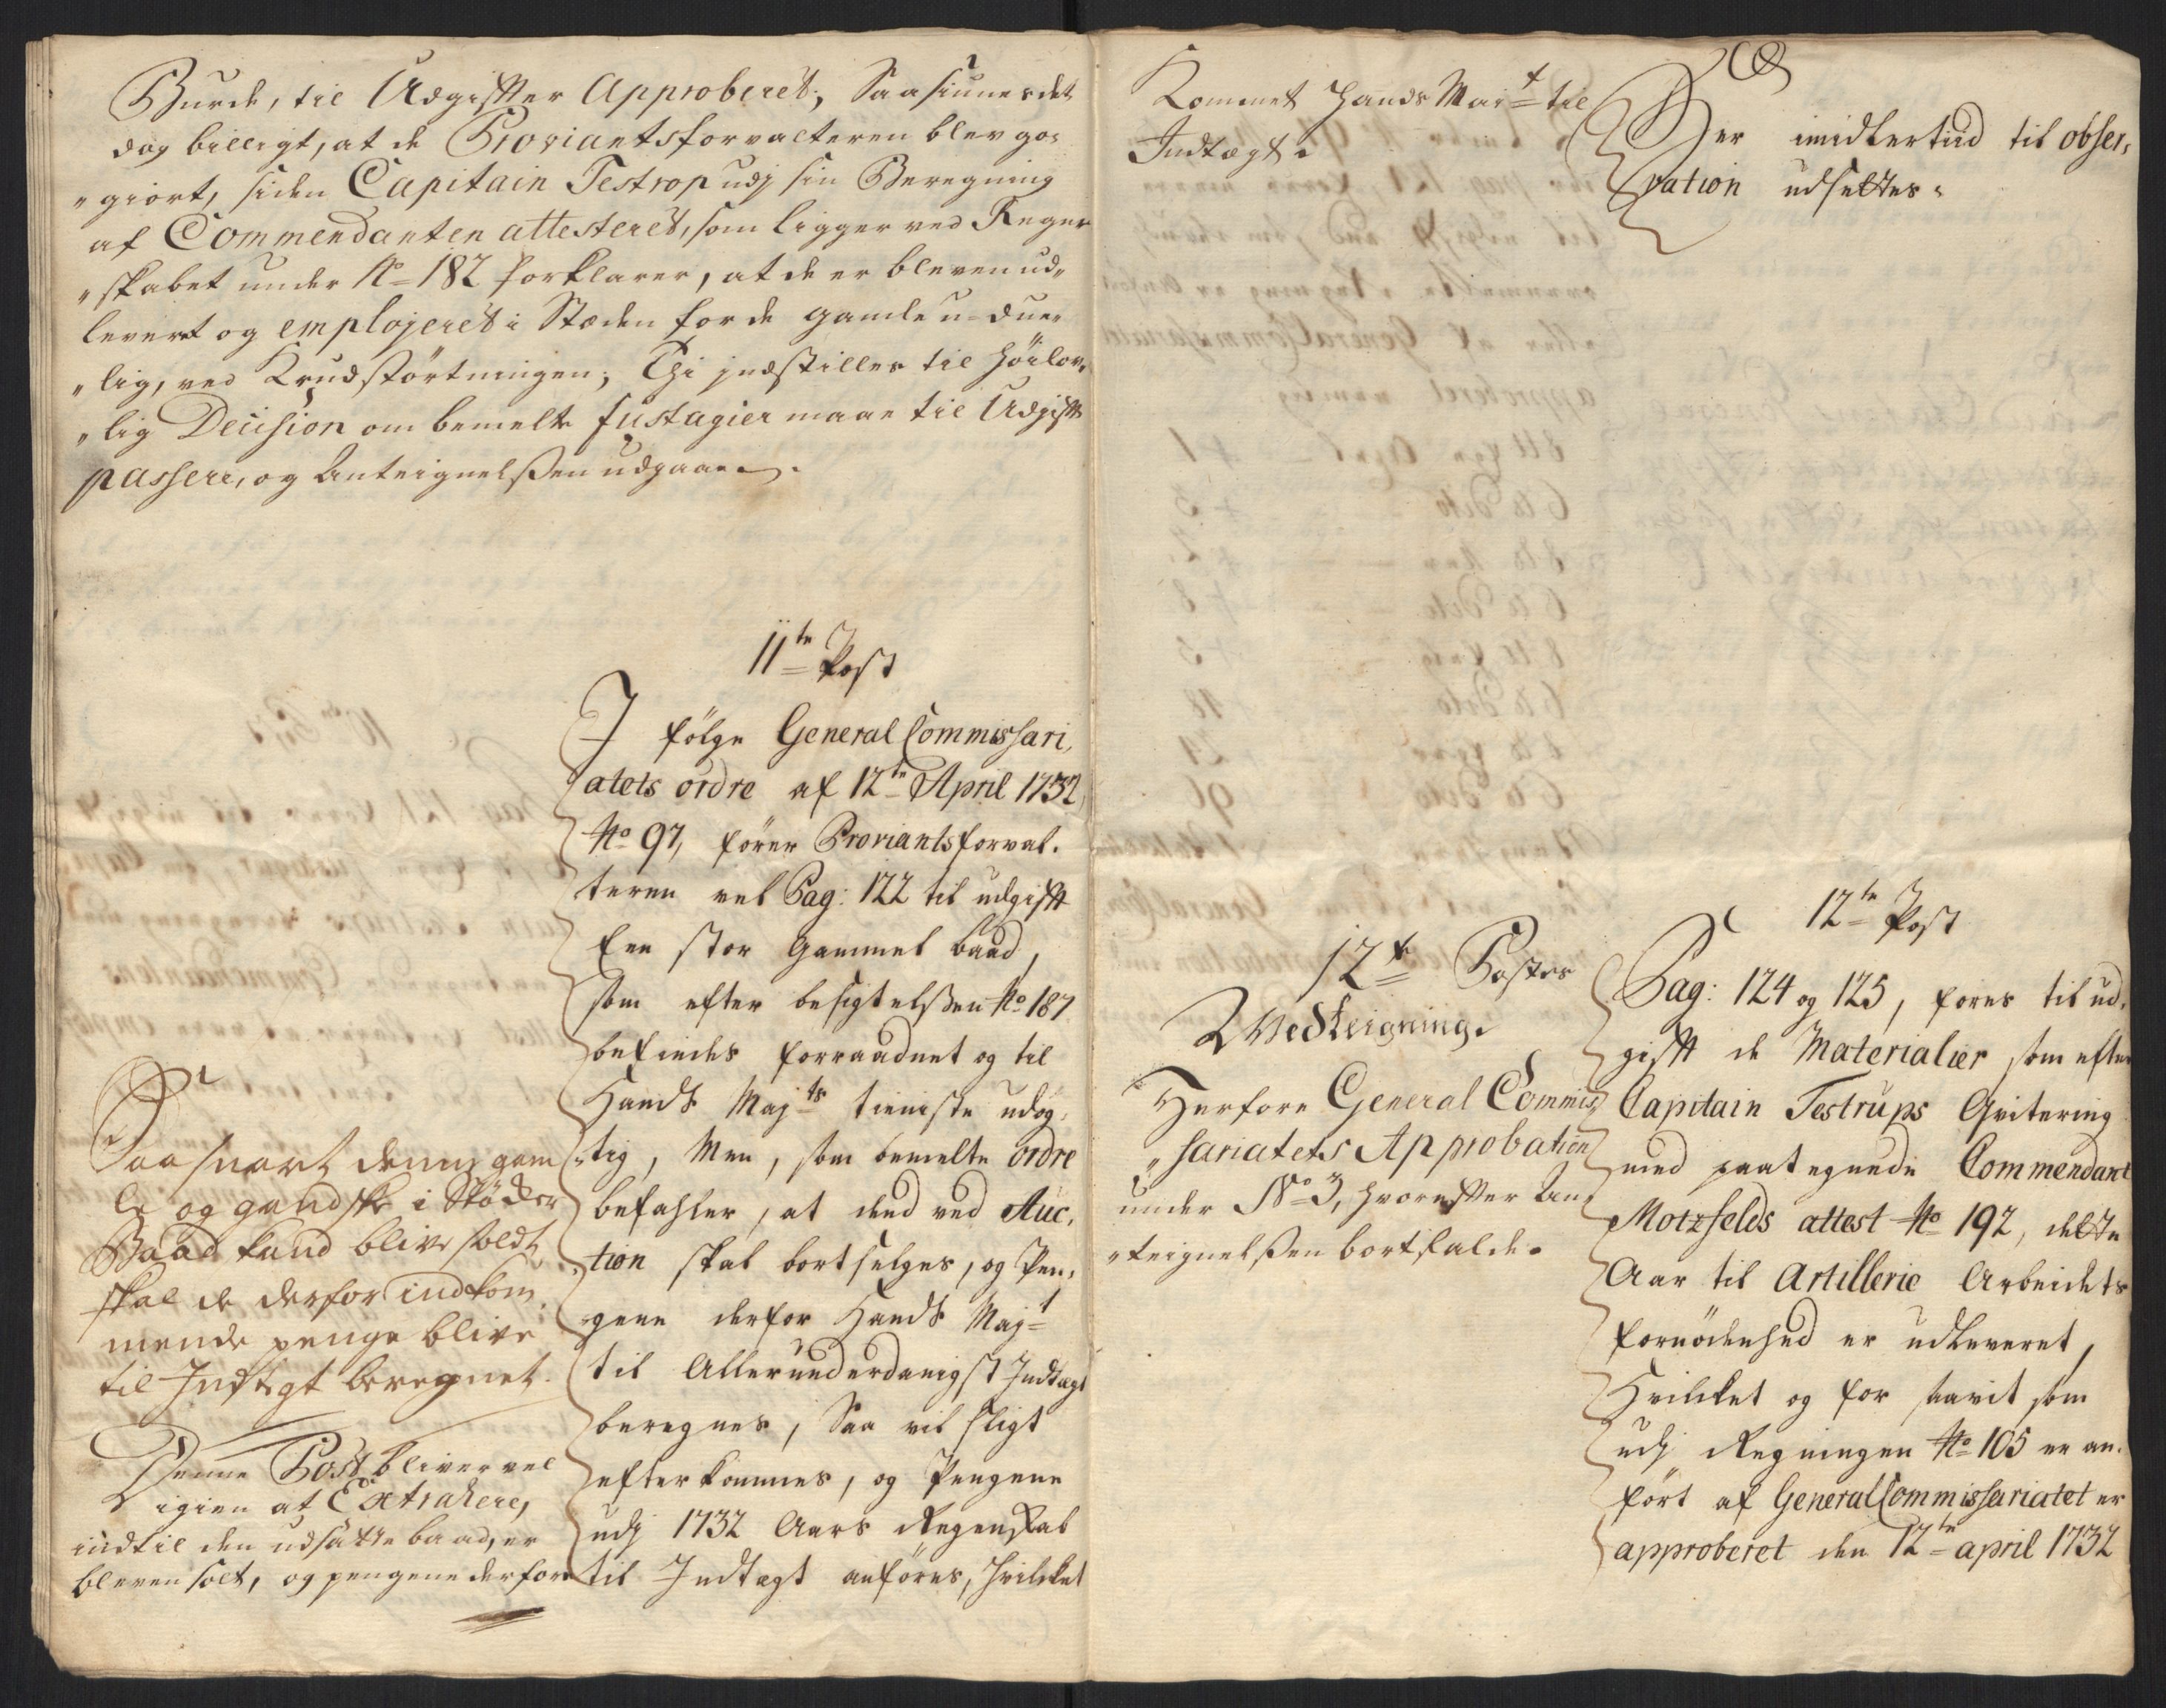 Burde, til Udgifter Approberet, Saa siunes det
dog billigt, at de Proviantsforvalteren blev go„
„giort, siden Capitain Testrop udj sin Beregning
af Commendanten attesteret, som ligger ved Regn
„skabet under No 182 forklarer, at de er bleven ud„
levert og emploÿeret i Stæden for de gamle u-due„
„lig, ved Krudstörtningen; Thi indstilles til höilov„
„lig Decision om bemelte fustagier maae til Udgift
passere, og Anteignelßen udgaae.
11te Post
I fölge General Commissari„
atets ordre af 12te April 1732
No 97, förer Proviantsforval„
teren vel Pag: 122 til udgifft
Een stor gammel baad,
som efter besigtelßen No 187
befindes forraadnet og til
Handˢ Majts tieniste udög„
„tig, Men, som bemelte ordre
befahler, at dend ved Auc„
„tion skal bortselges, og Pen„
„gene derfor Handˢ Majt
til Allerunderdanigst Indtægt
beregnes, Saa vil sligt
efterkommes, og Pengene
udj 1732 Aars Regenskab
til Indtægt anföres, hvilcket
Saasnart denne gam
le og gandske i Stöcker
Baad kand blive soldt,
skal de derfor indkom„
mende penge blive
til Indtegt beregnet.
Denne Post bliver vel
igien at Extrahere,
indtil den udsatte baad, er
bleven solt, og pengene derfore
Kommet Hands Mait til
Indtægt.
Der imidlertiid til obser„
vation udsettes.
12te Postes
Bedsteigning.
Herfore General Commis
„sariatets Approbation
under No 3, hvorefter An„
„teignelßen bortfalder.
12te Post
Pag: 124 og 125, föres til ud„
gifft de Materialier som efter
Capitain Testrups Qvitering
med paategnede Commendant
Motzfelds attest No 192, dette
Aar til Artillerie Arbeidets
fornödenhed er udleveret,
Hvilcket og for saavit som
udj Regningen No 105 er an„
fört af General Commissariatet er
approberet den 12te april 1732